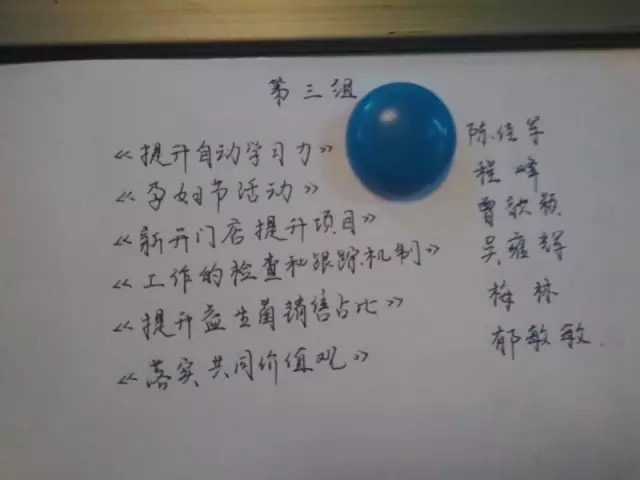 第三组
《提升自动学习力》 陈佳军
《孕妇节活动》 程峰
《新开门店提升项目》 曹歆颖
《工作的检查和跟踪机制》 吴雍辉
《提升益生菌销售占比》 梅林
《落实共同价值观》 郁敏敏.